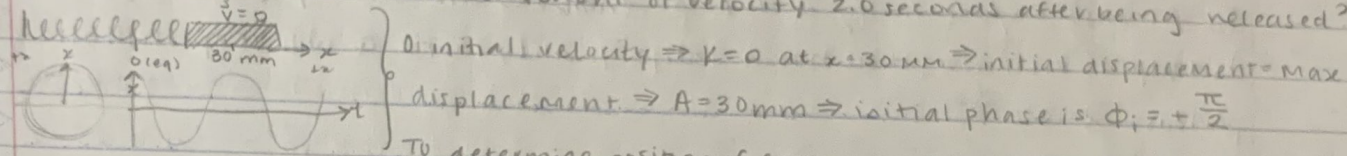 velocity 2.0 seconds after being released?
v = 0
0(eq) 30 mm x
+x x +x
0 initial velocity ⇒ K=0 at x=30 mm ⇒ initial displacement = max
displacement ⇒ A=30mm ⇒ initial phase is Φi = + π/2
x t
To determine